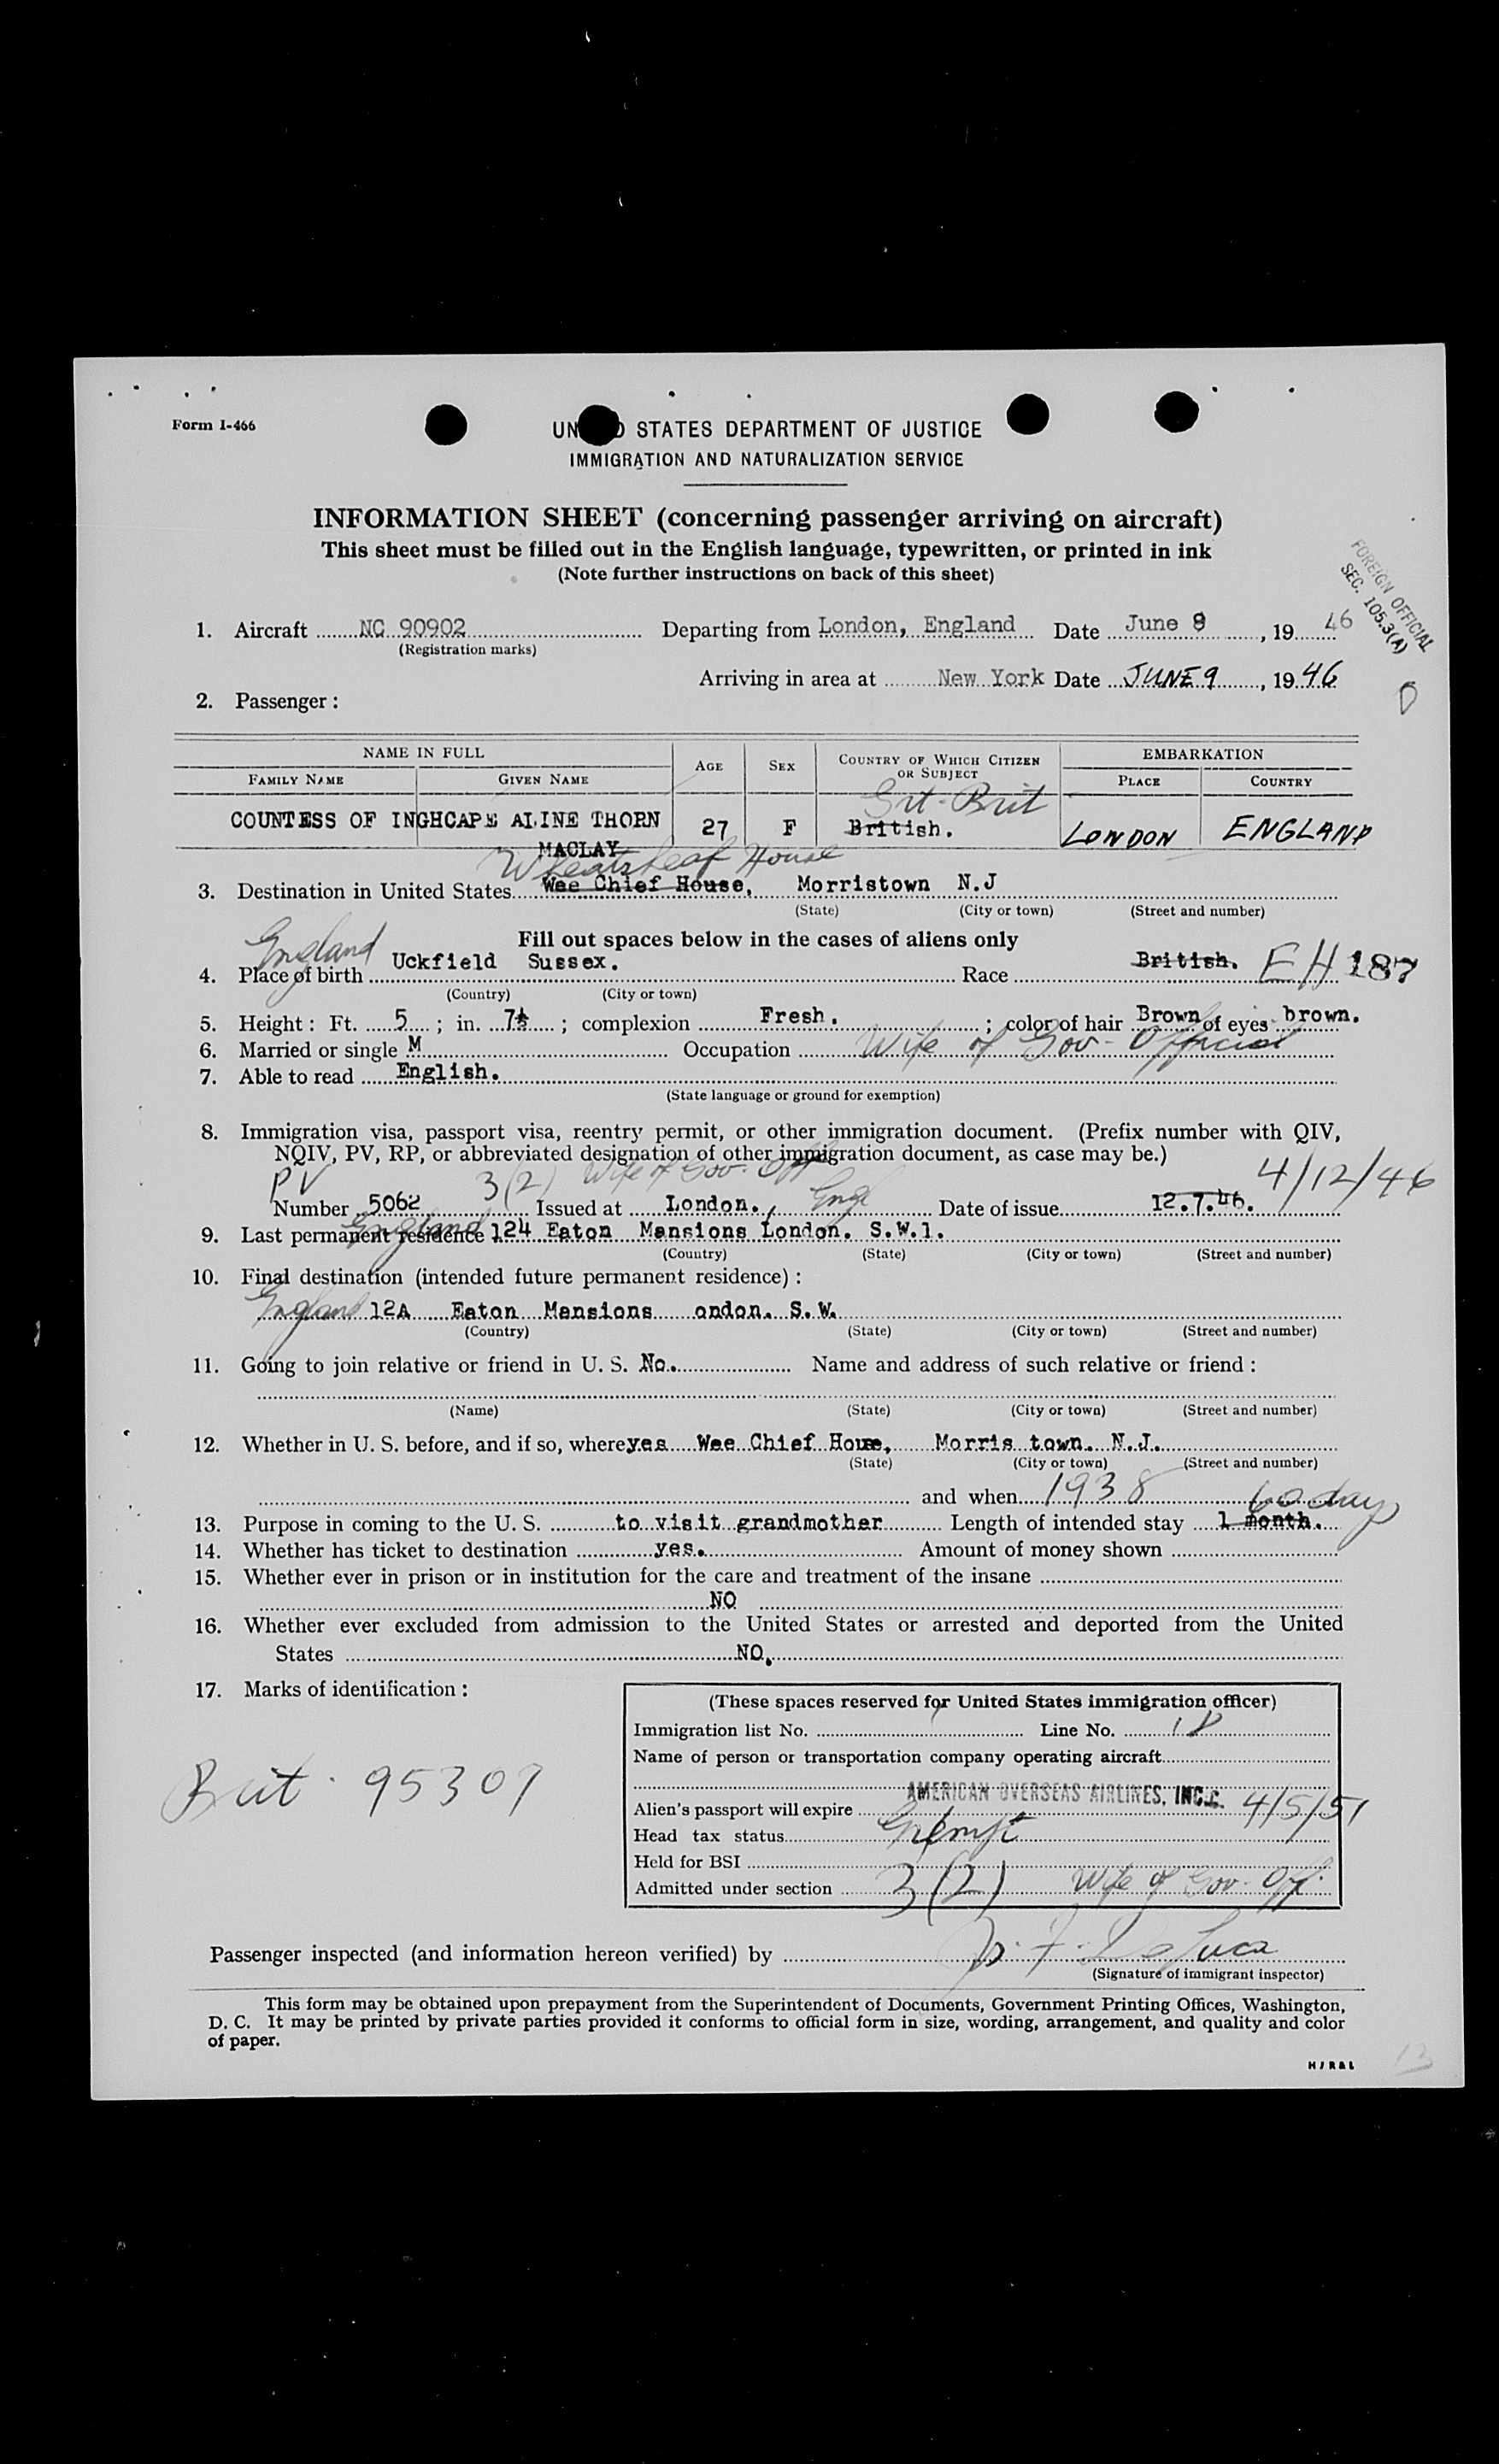 Form I-466
UN D STATES DEPARTMENT OF JUSTICE
IMMIGRATION AND NATURALIZATION SERVICE
INFORMATION SHEET (concerning passenger arriving on aircraft)
This sheet must be filled out in the English language, typewritten, or printed in ink
(Note further instructions on back of this sheet)
FOREIGN OFFICIAL
SEC. 105.3(A)
1. Aircraft NC 90902 Departing from London, England Date June 8, 19 46
(Registration marks)
Arriving in area at New York Date JUNE 9, 19 46
2. Passenger:
NAME IN FULL AGE SEX COUNTRY OF WHICH CITIZEN OR SUBJECT EMBARKATION
FAMILY NAME GIVEN NAME PLACE COUNTRY
Grt-Brit
COUNTESS OF INGHCAPE ALINE THORN 27 F British. LONDON ENGLAND
MACLAY
Wheatsheaf House
3. Destination in United States Wee Chief House, Morristown N.J
(State) (City or town) (Street and number)
Fill out spaces below in the cases of aliens only
England
4. Place of birth Uckfield Sussex. Race British. EH 187
(Country) (City or town)
5. Height: Ft. 5; in. 7½; complexion Fresh.; color of hair Brown of eyes brown.
6. Married or single M Occupation Wife of Gov- Official
7. Able to read English.
(State language or ground for exemption)
8. Immigration visa, passport visa, reentry permit, or other immigration document. (Prefix number with QIV,
NQIV, PV, RP, or abbreviated designation of other immigration document, as case may be.)
PV 3(2) Wife of Gov. Off 4/12/46
Number 5062 Issued at London., Engl Date of issue 12.7.46.
9. Last permanent residence England 124 Eaton Mansions London. S.W.1.
(Country) (State) (City or town) (Street and number)
10. Final destination (intended future permanent residence):
England 12A Eaton Mansions ondon. S.W.
(Country) (State) (City or town) (Street and number)
11. Going to join relative or friend in U. S. No. Name and address of such relative or friend:
(Name) (State) (City or town) (Street and number)
12. Whether in U. S. before, and if so, where yes Wee Chief House, Morris town. N.J.
(State) (City or town) (Street and number)
and when 1938 60 days
13. Purpose in coming to the U. S. to visit grandmother Length of intended stay 1 month.
14. Whether has ticket to destination yes. Amount of money shown
15. Whether ever in prison or in institution for the care and treatment of the insane
NO
16. Whether ever excluded from admission to the United States or arrested and deported from the United
States NO.
17. Marks of identification:
Brit. 95309
(These spaces reserved for United States immigration officer)
Immigration list No. Line No. 18
Name of person or transportation company operating aircraft
AMERICAN OVERSEAS AIRLINES, INC.
Alien's passport will expire 4/5/51
Head tax status Exempt
Held for BSI
Admitted under section 3(2) Wife of Gov. Off.
Passenger inspected (and information hereon verified) by DeLuca
(Signature of immigrant inspector)
This form may be obtained upon prepayment from the Superintendent of Documents, Government Printing Offices, Washington,
D. C. It may be printed by private parties provided it conforms to official form in size, wording, arrangement, and quality and color
of paper.
H/R&L
13